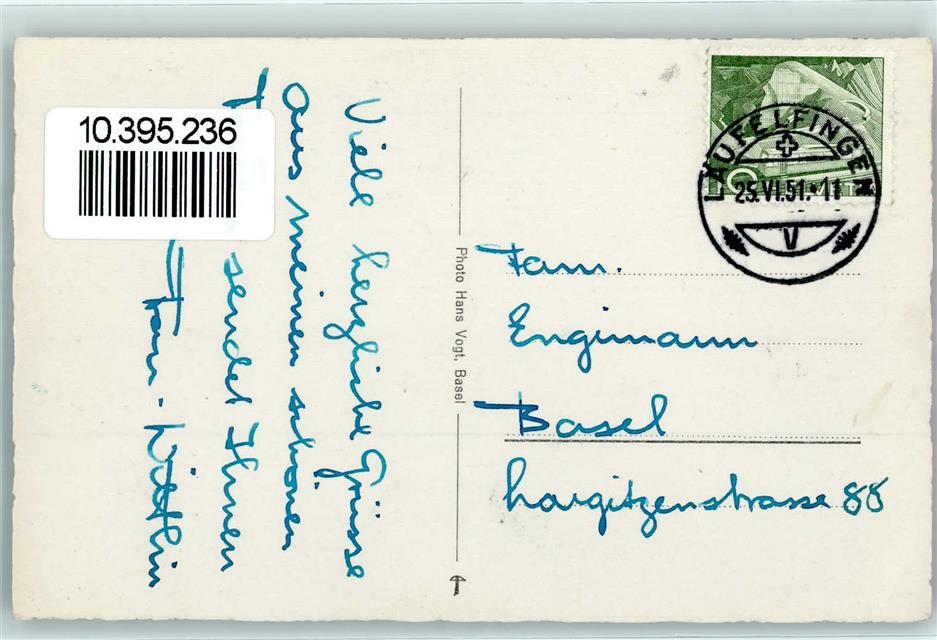 10.395.236
Viele herzliche Grüsse
aus meinen schönen
sendet Ihnen
Fam. Wüthlin
Photo Hans Vogt, Basel
LÄUFELFINGEN
25.VI.51.*11
V
Fam.
Engimann
Basel
Largitzenstrasse 88